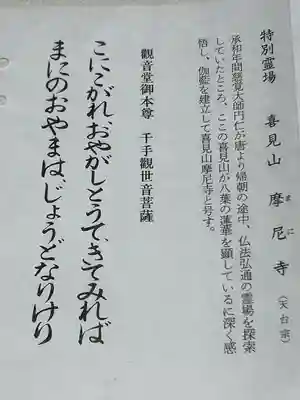 特別霊場　喜見山　摩尼寺（天台宗）
まに
承和年間慈覚大師円仁が唐より帰朝の途中、仏法弘通の霊場を探索
していたところ、ここの喜見山が八葉の蓮華を顕しているに深く感
悟し、伽藍を建立して喜見山摩尼寺と号す。
觀音堂御本尊　千手觀世音菩薩
こにこがれ、おやがしとうて、きてみれば
まにのおやまは、じょうどなりけり